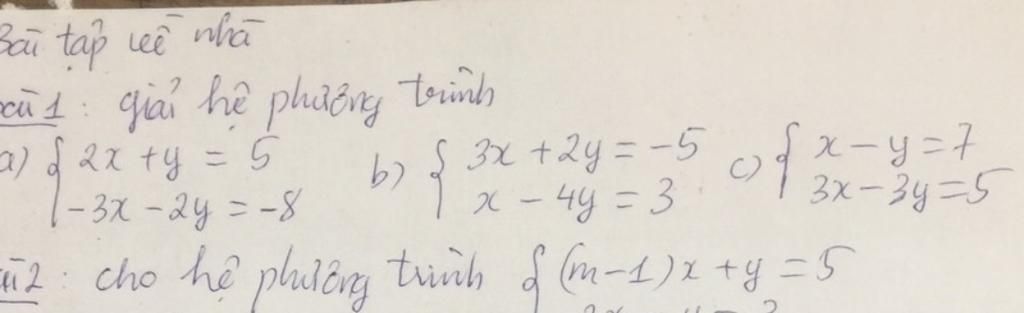 Bài tập về nhà
Bài 1: giải hệ phương trình
a) { 2x + y = 5 b) { 3x + 2y = -5 c) { x - y = 7
-3x - 2y = -8 x - 4y = 3 3x - 3y = 5
2: cho hệ phương trình { (m - 1)x + y = 5